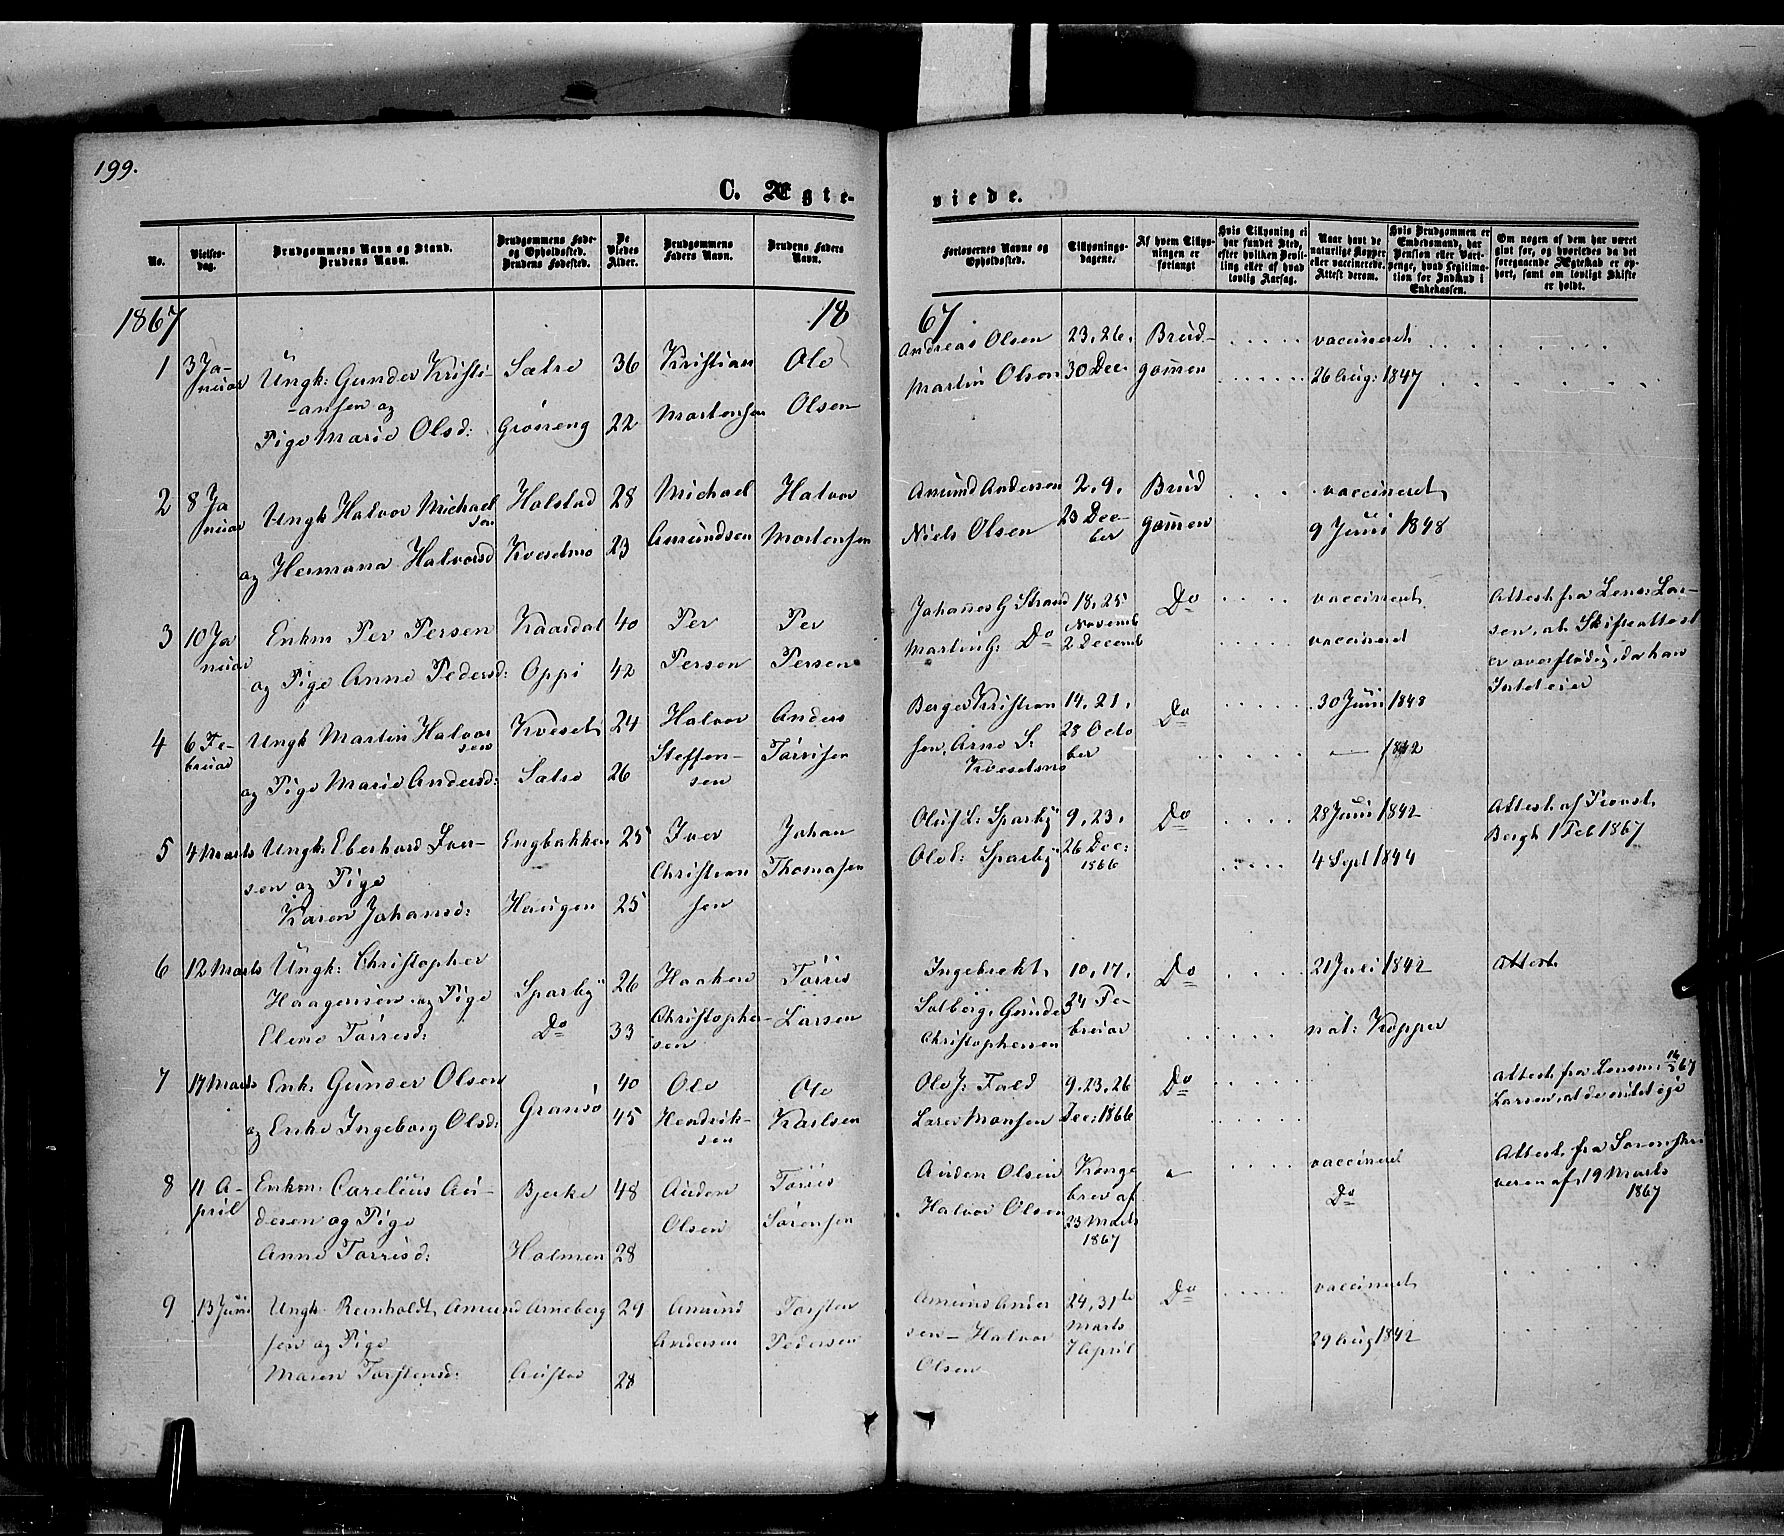 199.
C. Ægte-
viede.
No.
Vielses-
dag.
Brudgommens Navn og Stand.
Brudens Navn.
Brudgommens Føde-
og Opholdssted.
Brudens Fødested.
De
Viedes
Alder.
Brudgommens
Faders Navn.
Brudens Faders
Navn.
Forlovernes Navne og
Opholdssted.
Tillysnings-
dagene.
Af hvem Tillys-
ningen er
forlangt
Hvis Tillysning ei
har fundet Sted,
efter hvilken Bevil-
ling eller af hvad
lovlig Aarsag.
Naar havt de
naturlige Kopper
eller vaccinerede.
Attest derom.
Hvis Brudgommen er
Embedsmand, har
Pension eller Vart-
penge, hvad Legitima-
tion for Indskud i
Enkekassen.
Om nogen af dem har været
gift før, og hvorledes da det
foregaaende Ægteskab er op-
hørt, samt om lovligt Skifte
er holdt.
1867
18
67
1
3 Ja-
nuar
Ungk: Gunder Kristi-
-ansen og
Pige Marie Olsd:
Sætre
Grøneng
36
22
Kristian
Mortensen
Ole
Olsen
Andreas Olsen
Martin Olsen
23, 26,
30 Dec.
Brud-
gomen
vaccineret
26 Aug: 1847
2
8 Ja
nuar
Ungk Halvor Michael
sen
og Hermana Halvorsd
Halstad
Kveselmo
28
23
Michael
Amundsen
Halvor
Mortensen
Amund Andersen
Niels Olsen
2, 9,
23 Dec-
ber
Brud
gomen
vaccineret
9 Juni 1848
3
10 Ja
nuar
Enkm Per Persen
og Pige Anne Pedersd:
Kaasdal
Oppi
40
42
Per
Persen
Per
Persen
Johanes G Strand
Martin G: Do
18, 25
Novemb
2 Decemb
Do
vaccineret
vaccineret
Attest fra Lens: Lar-
sen, at Skifteattest
er overflødig, da han
Intet eier
4
6 Fe-
bruar
Ungk Martin Halvor
sen
og Pige Marie Andersd:
Kveset
Sætre
24
26
Halvor
Steffen-
sen
Anders
Torrisen
Berger Kristian
sen, Arne S:
Kveselmo
14, 21,
28 Octo
ber
Do
30 Juni 1848
— 1842
5
4 Marts
Ungk: Eberhard Iver-
sen og Pige
Karen Johansd:
Engbakken
Haugen
25
25
Iver
Christian
sen
Johan
Thomasen
Oluf L: Sparby
Ole E: Sparby
9, 23,
26 Dec:
1866
Do
28 Juni 1842
4 Sept 1844
Attest af Provst
Bergh 1 Feb 1867
6
12 Marts
Ungk: Christopher
Haagensen og Pige
Elene Torresd:
Sparby
Do
26
33
Haaken
Christopher-
sen
Torris
Larsen
Ingebrekt
Solberg, Gunder
Christophersen
10, 17,
24 Fe-
bruar
Do
21 Juli 1842
nat: Kopper
Attest
7
17 Marts
Enk: Gunder Olsen
og Enke Ingeborg Olsd:
Granso
40
45
Ole
Hendrik-
sen
Ole
Karlsen
Ole J: Fald
Lars Monsen
9, 23, 26
Dec: 1866
Do
Attest fra Lensm:
Larsen, at de intet eje
8
11 A-
pril
Enkm: Carelius Au-
densen og Pige
Anne Torrisd:
Bjerke
Holmen
48
28
Auden
Olsen
Torris
Sørensen
Auden Olsen
Halvor Olsen
Konge
brev af
23 Marts
1867
vaccineret
Do
Attest fra Sorenskri
veren af 19 Marts
1867
9
13 Juni
Ungk. Reinholdt Amund
sen og Pige
Maren Torstensd:
Arneberg
Austad
29
28
Amund
Andersen
Torsten
Pedersen
Amund Ander
sen - Halvor
Olsen
24, 31te
Marts
7 April
Do
vaccineret
29 Aug 1842